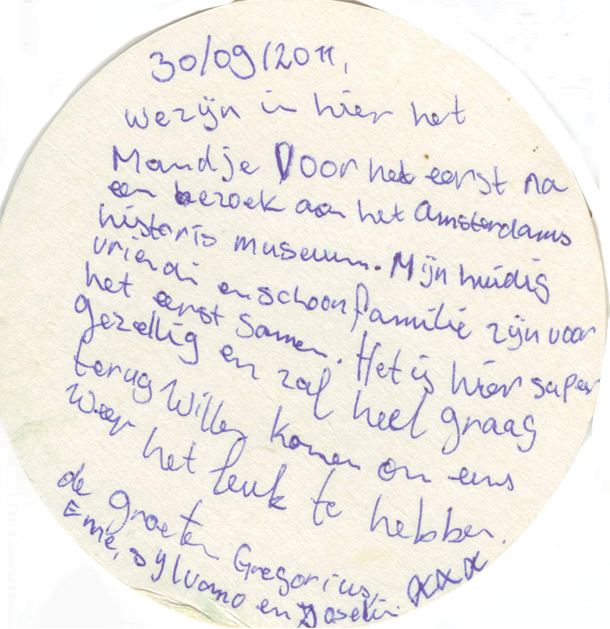 30/09/2011,
we zijn in hier het
Mandje Door het eerst na
een bezoek aan het Amsterdams
historis museum. Mijn huidig
vriendin en schoonfamilie zijn voor
het eerst samen. Het is hier super
gezellig en zal heel graag
terug willen komen om eens
weer het leuk te hebben.
de groeten Gregorius,
Emie, Sylvano en xxx